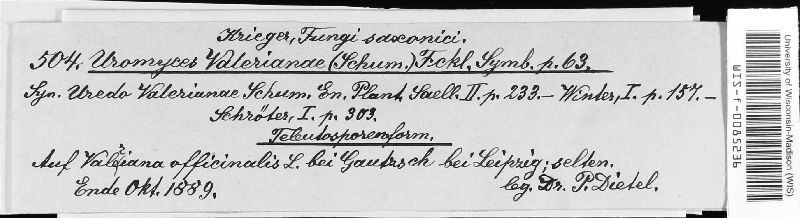 Krieger, Fungi saxonici.
504. Uromyces Valerianae (Schum.) Fckl. Symb. p. 63.
Syn. Uredo Valerianae Schum. En. Plant. Saell. II. p. 233. – Winter, I. p. 157. –
Schröter, I. p. 303.
Teleutosporenform.
Auf Valeriana officinalis L. bei Gautzsch bei Leipzig; selten.
Ende Okt. 1889. leg. Dr. P. Dietel.
University of Wisconsin-Madison (WIS)
WIS-f-0085236